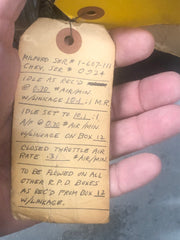 MILFORD SER.# 1-667-111
CHEV. SER.# 0-924
IDLE AS REC'D
@ 0.70 #AIR/MIN
W/LINKAGE 10.1:1 M.R.
IDLE SET TO 10.1:1
A/F @ 0.70 #AIR/MIN
W/LINKAGE ON BOX 12
CLOSED THROTTLE AIR
RATE .31 #AIR/MIN.
TO BE FLOWED ON ALL
OTHER R.P.D. BOXES
AS REC'D FROM BOX 12
W/LINKAGE.